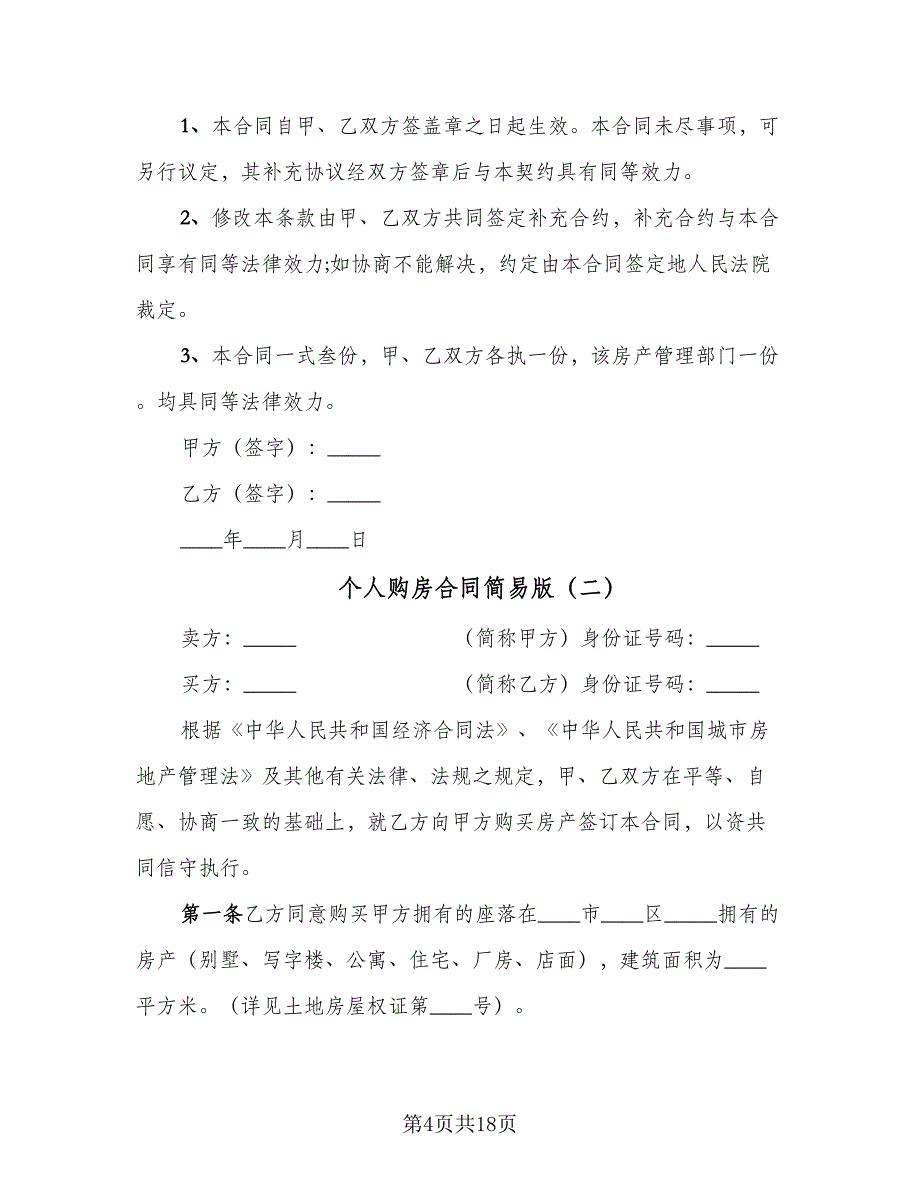 1、本合同自甲、乙双方签盖章之日起生效。本合同未尽事项，可
另行议定，其补充协议经双方签章后与本契约具有同等效力。
2、修改本条款由甲、乙双方共同签定补充合约，补充合约与本合
同享有同等法律效力;如协商不能解决，约定由本合同签定地人民法院
裁定。
3、本合同一式叁份，甲、乙双方各执一份，该房产管理部门一份
。均具同等法律效力。
甲方（签字）：_____
乙方（签字）：_____
____年____月____日
个人购房合同简易版（二）
卖方：_____ （简称甲方）身份证号码：_____
买方：_____ （简称乙方）身份证号码：_____
根据《中华人民共和国经济合同法》、《中华人民共和国城市房
地产管理法》及其他有关法律、法规之规定，甲、乙双方在平等、自
愿、协商一致的基础上，就乙方向甲方购买房产签订本合同，以资共
同信守执行。
第一条乙方同意购买甲方拥有的座落在____市____区_____拥有的
房产（别墅、写字楼、公寓、住宅、厂房、店面），建筑面积为____
平方米。（详见土地房屋权证第____号）。
第4页共18页